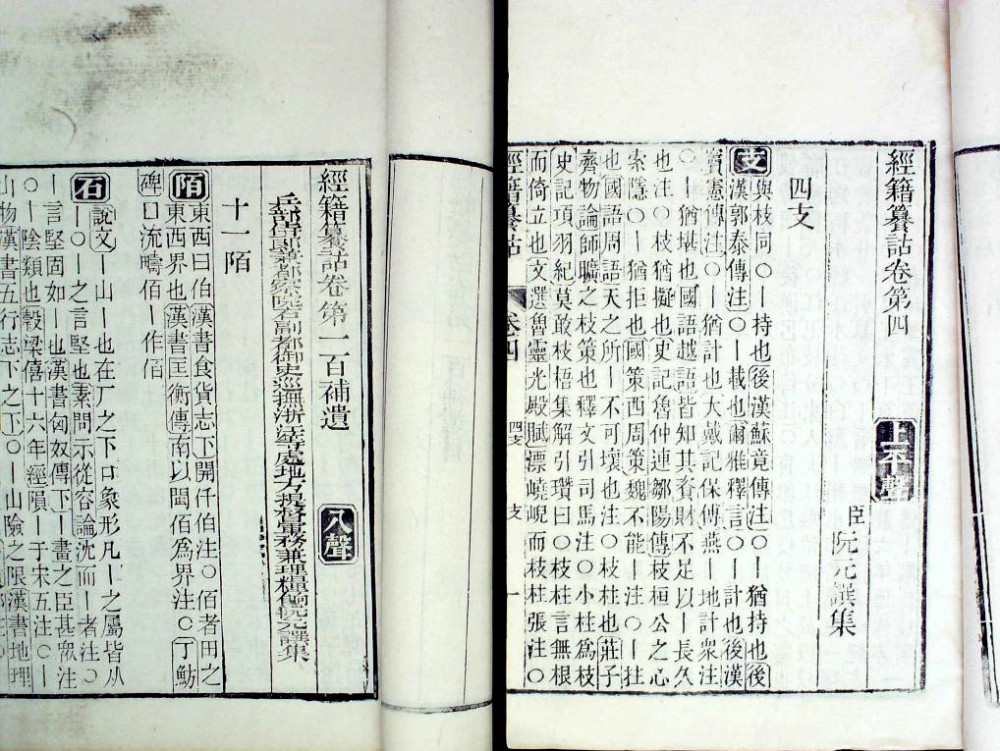 經籍籑詁卷第四 上平聲
臣阮元譔集
四支
支與枝同○丨持也後漢蘇竟傳注○丨猶持也後
漢郭泰傳注○丨載也爾雅釋言○丨計也後漢
竇憲傳注○丨猶計也大戴記保傅燕丨地計衆注
○丨猶堪也國語越語皆知其資財不足以丨長久
也注○枝猶擬也史記魯仲連鄒陽傳枝桓公之心
索隱○丨猶拒也國策西周策魏不能丨注○丨拄
也國語周語天之所丨不可壞也注○枝柱也莊子
齊物論師曠之枝策也釋文引司馬注○小柱爲枝
史記項羽紀莫敢枝梧集解引瓚曰○枝柱言無根
而倚立也文選魯靈光殿賦漂嶢峴而枝柱張注○
經籍籑詁 卷四 四支 支 一
經籍籑詁卷第一百補遺 入聲
兵部侍郎兼都察院右副都御史巡撫浙江等處地方提督軍務兼理糧餉阮元譔集
十一陌
陌東西曰伯漢書食貨志下開仟伯注○佰者田之
東西界也漢書匡衡傳南以閩佰爲界注○丁魴
碑囗流疇佰丨作佰
石說文丨山丨也在厂之下口象形凡丨之屬皆从
丨○丨之言堅也素問示從容論沈而丨者注○
丨言堅固如丨也漢書匈奴傳下丨畫之臣甚衆注
○丨陰類也穀梁僖十六年經隕丨于宋五注○丨
山物漢書五行志下之下○丨山險之限漢書地理